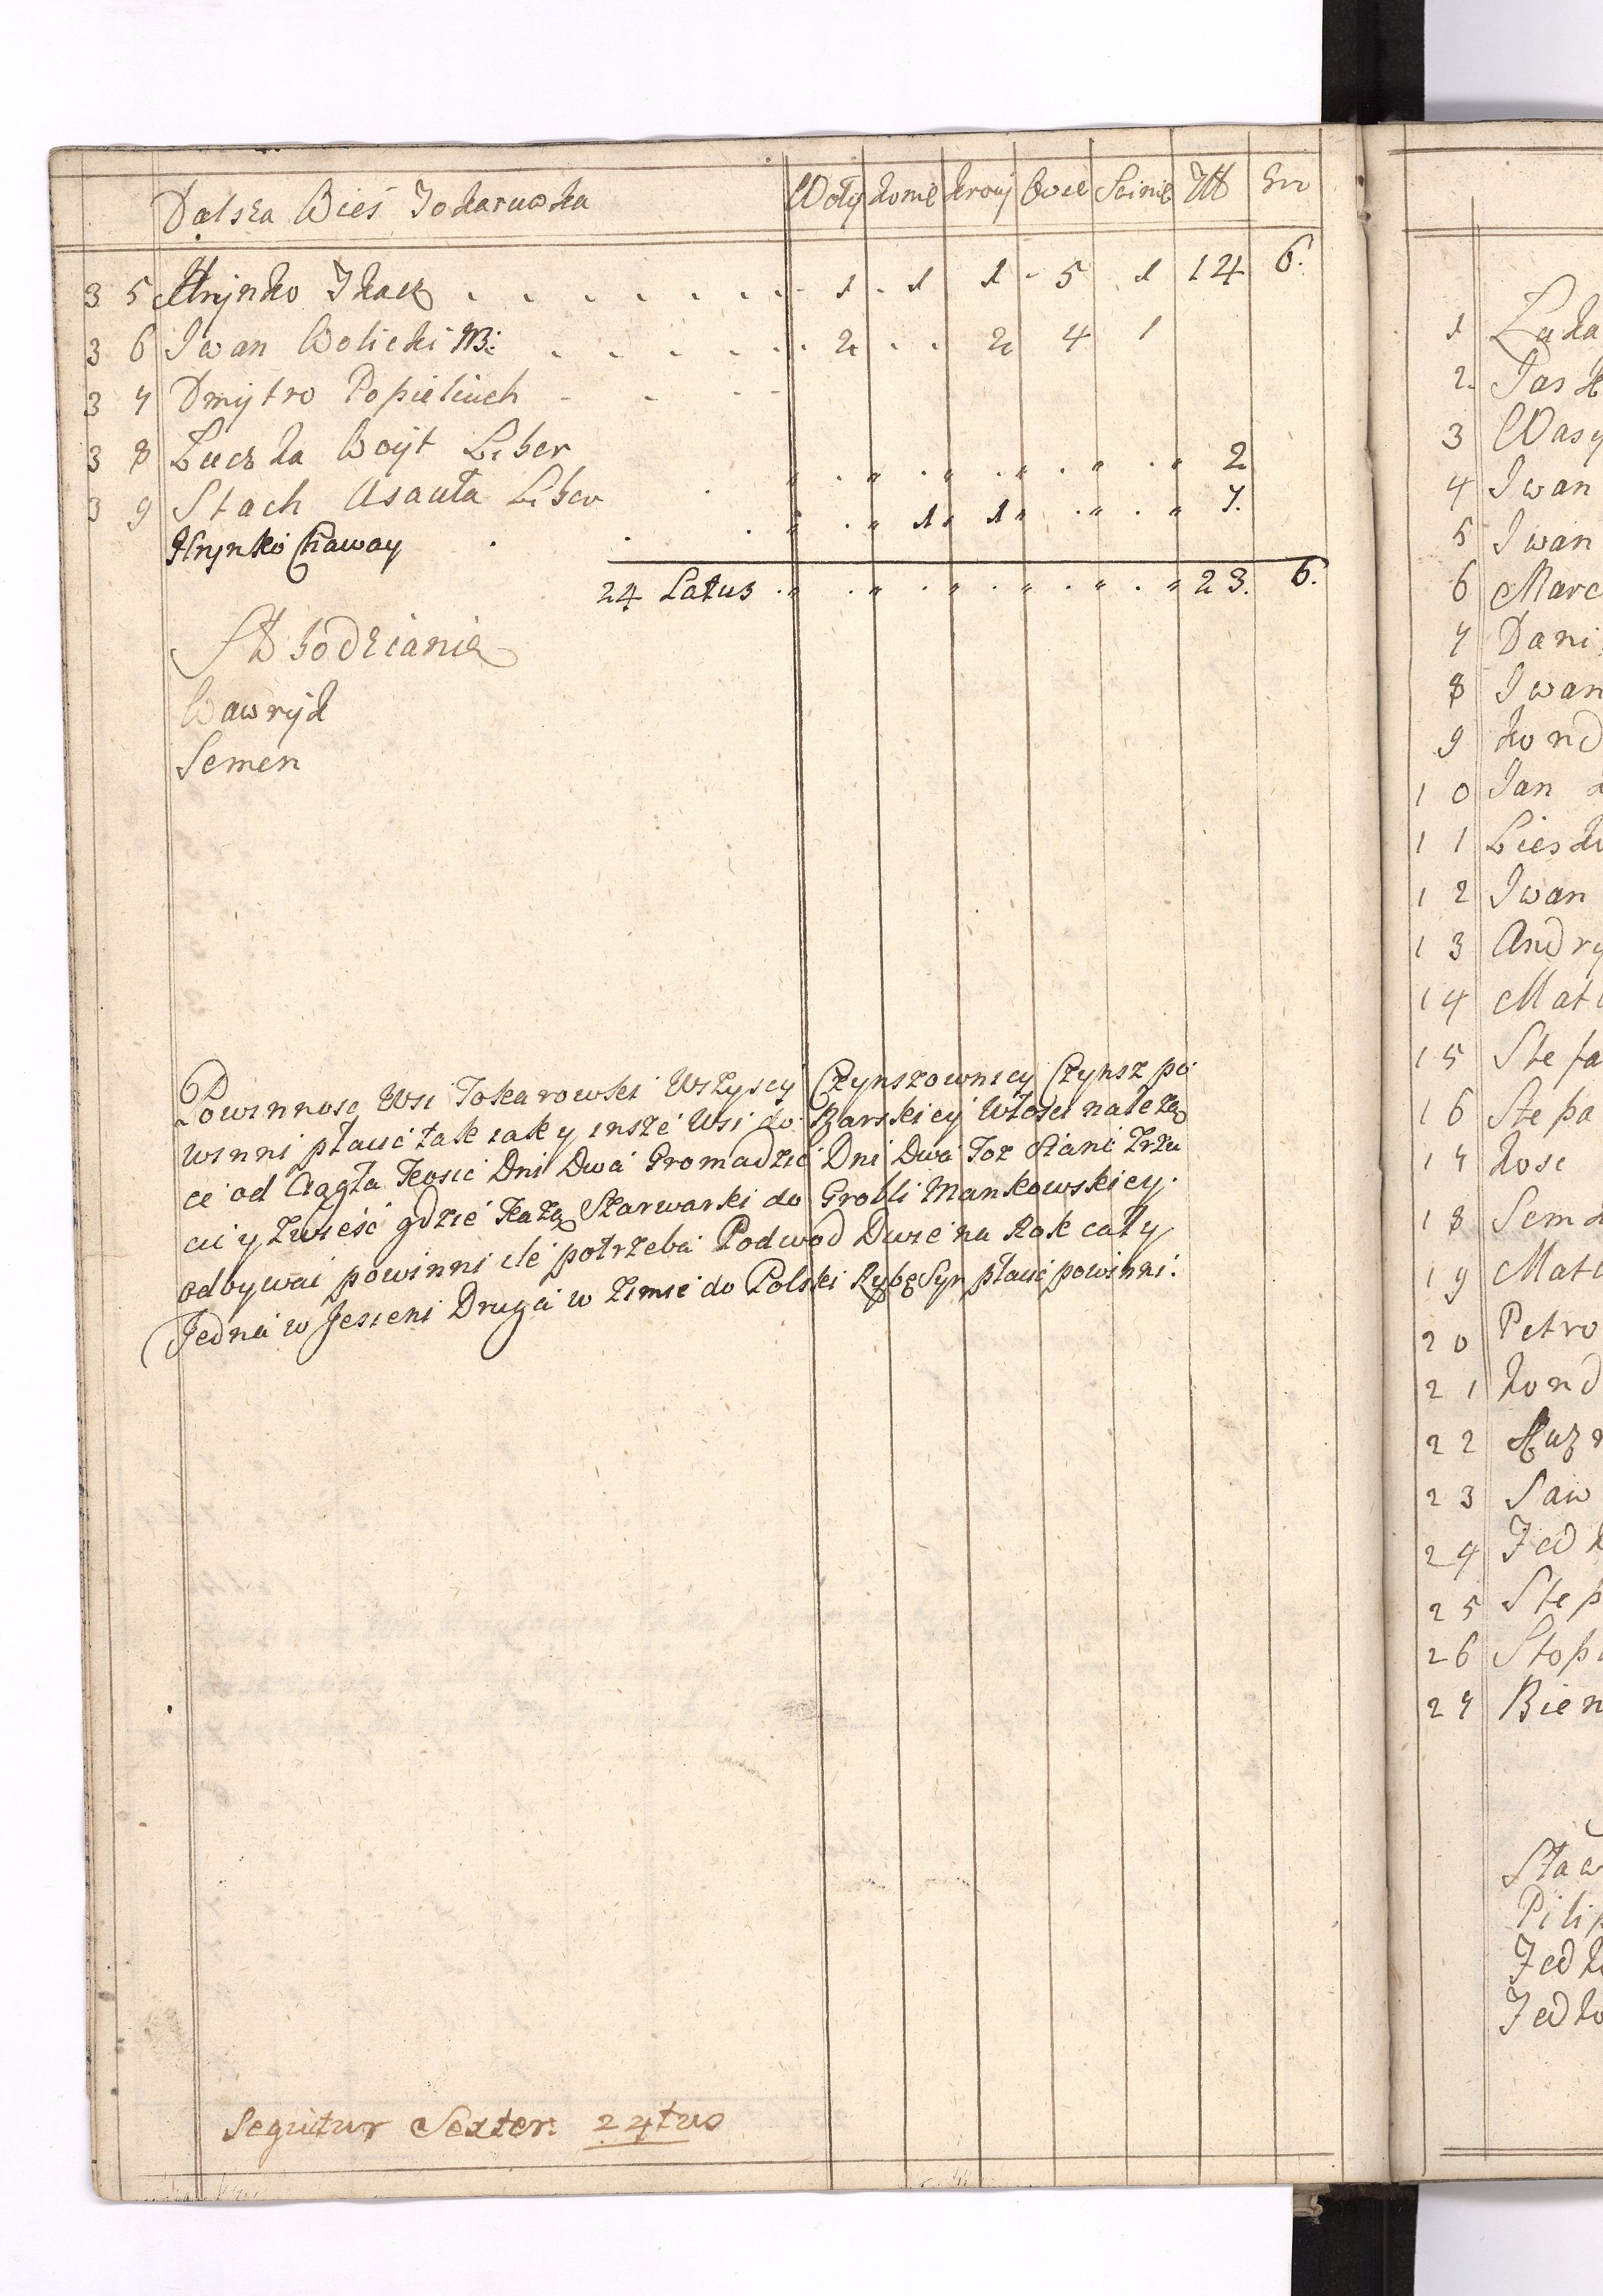 Dalsza Wieś Tokarowka Woły konie krowy Owce Swinie Zł gr
35 Hrynko Tkacz 1 1 1 5 1 14 6.
36 Iwan Wolicki 2 2 4 1
37 Dmytro Popieliuch
38 Łuczka Woyt Liber
39 Stach Asauła Liber 2
Hrynko Chaway 1 1 7.
24 Latus 23. 6.
Wawryk
Semen
Powinnosc Wsi Tokarowki Wszyscy Czynszownicy Czynsz po
winni płacić tak iak y insze Wsi do Barskiey Włości należą
ce od Ciągła Kosić Dni Dwa Gromadzić Dni Dwa Toż Siano Zrzu
cić y Zwieść gdzie Każą Szarwarki do Grobli Mankowskiey
odbywać powinni ile potrzeba Podwod Dwie na Rok cały
Jedna w Jesieni Druga w Zimie do Polski Rybę Syr płacić powinni.
Sequitur Sexter: 24tus
1
2. Pas
3 Wasy
4 Iwan
5 Iwan
6 Marc
7 Dani
8 Iwan
9 kond
10 Jan
11
12 Iwan
13 Andry
14 Mat
15 Stefa
16 Stepa
17 kosc
18 Sem
19 Mat
20 Petro
21 kond
22
23 Saw
24 Fed
25 Step
26
27 Bien
Pilip
Fedk
Fedko